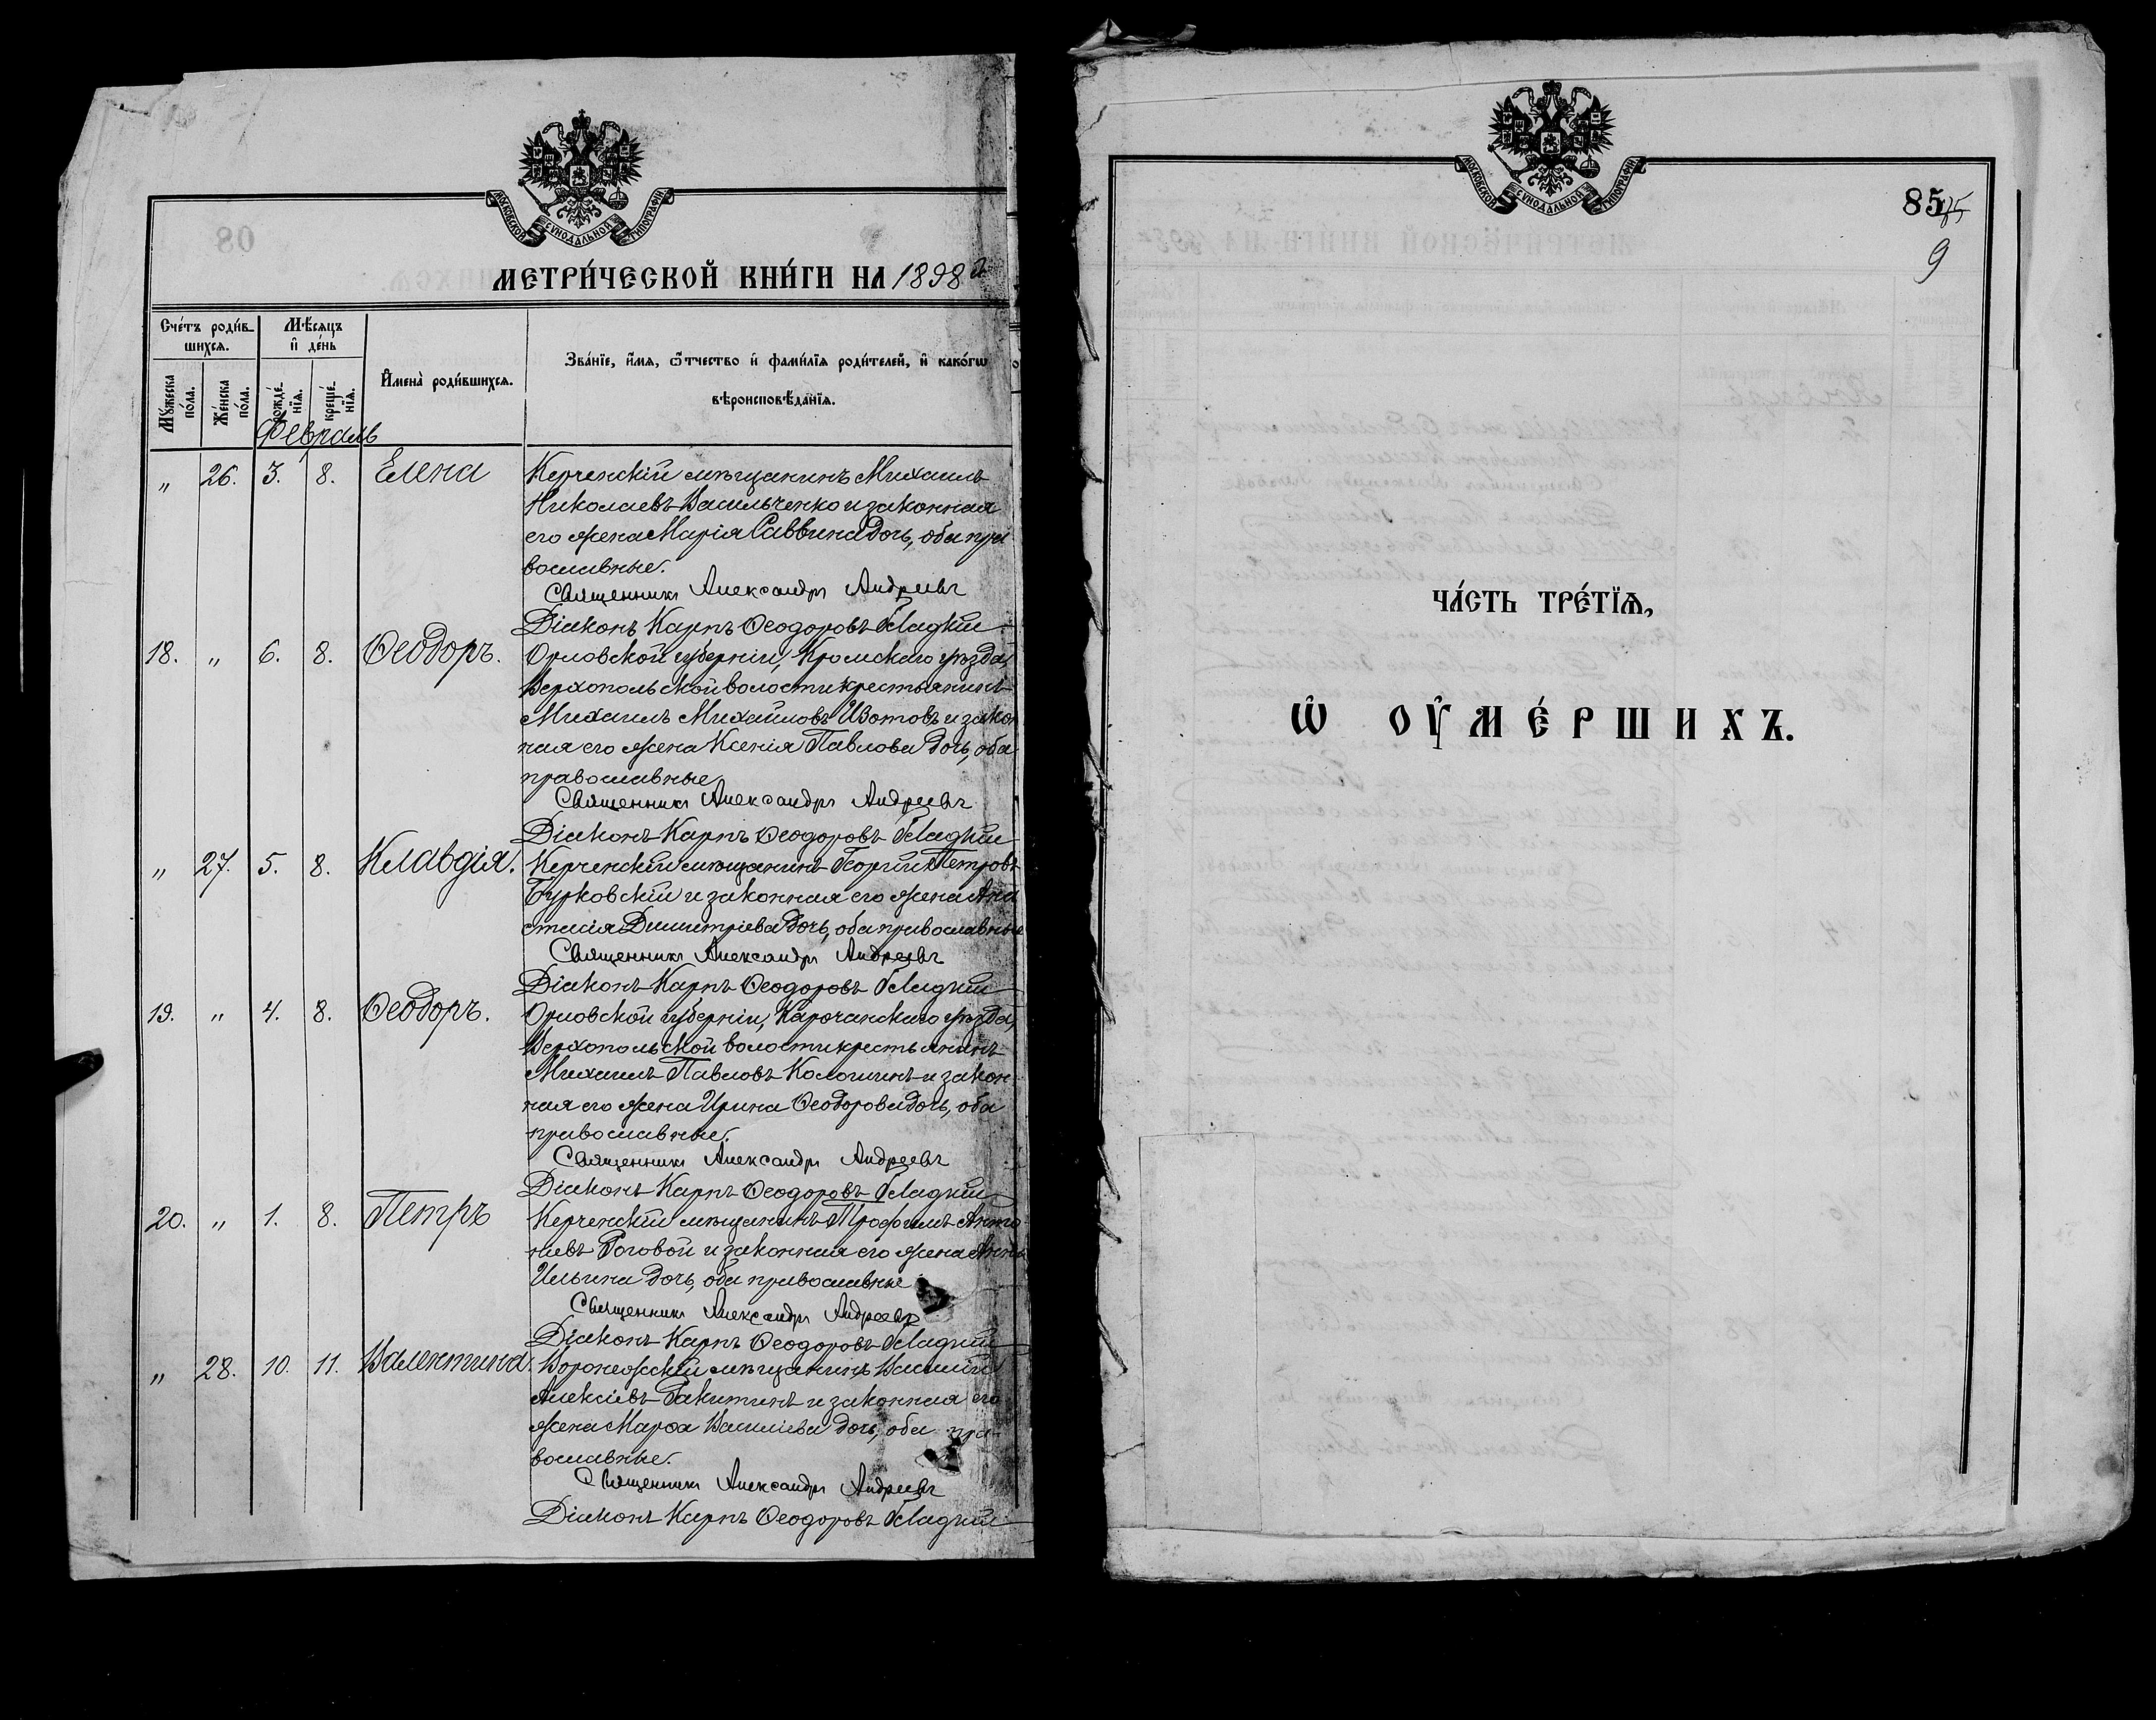 МОСКОВСКОЙ СУНОДАЛЬНОЙ ТИПОГРАФІИ
МЕТРИ́ЧЕСКОЙ КНИ́ГИ НА 1898 г.
Сче́тъ роди́в-
шихсѧ.
Мѣ́сѧцъ
и҆ де́нь
И҆мена̀ роди́вшихсѧ.
Зва́нїе, и҆́мѧ, ѿтчество и҆ фами́лїѧ роди́телей, и҆ како́гѡ
вѣроисповѣ́данїѧ.
Мꙋ́жеска по́ла.
Же́нска по́ла.
рожде́нїѧ.
креще́нїѧ.
Февраль
" 26. 3. 8. Елена Керченскій мѣщанинъ Михаилъ
Николаевъ Васильченко и законная
его жена Марія Саввина дочь, оба пра
вославные.
Священникъ Александръ Андреевъ
Діаконъ Карпъ Ѳеодоровъ
18. " 6. 8. Ѳеодоръ. Орловской губерніи, Кромскаго уѣзда,
Верхопольской волости крестьянинъ
Михаилъ Михайловъ Изотовъ и закон
ная его жена Ксенія Павлова дочь, оба
православные
Священникъ Александръ Андреевъ
Діаконъ Карпъ Ѳеодоровъ
" 27. 5. 8. Клавдія. Керченскій мѣщанинъ Георгій Петровъ
Бурковскій и законная его жена Ана
стасія Димитріева дочь, оба православные
Священникъ Александръ Андреевъ
Діаконъ Карпъ Ѳеодоровъ
19. " 4. 8. Ѳеодоръ. Орловской губерніи, Карочанскаго уѣзда,
Верхопольской волости крестьянинъ
Михаилъ Павловъ и закон
ная его жена Ирина Ѳеодорова дочь, оба
православные.
Священникъ Александръ Андреевъ
Діаконъ Карпъ Ѳеодоровъ
20. " 1. 8. Петръ Керченскій мѣщанинъ Трофимъ Анто
ніевъ Роговой и законная его жена Анна
Ильина дочь, оба православные
Священникъ Александръ Андреевъ
Діаконъ Карпъ Ѳеодоровъ
" 28. 10. 11. Валентина. Воронежскій мѣщанинъ Василій
Алексіевъ Ракитинъ и законная его
жена Марѳа Василіева дочь, оба пра-
вославные.
Священникъ Александръ Андреевъ
Діаконъ Карпъ Ѳеодоровъ
МОСКОВСКОЙ СУНОДАЛЬНОЙ ТИПОГРАФІИ
85
9
ЧА́СТЬ ТРЕ́ТЇѦ,
Ѡ҆ ОУ҆МЕ́РШИХЪ.